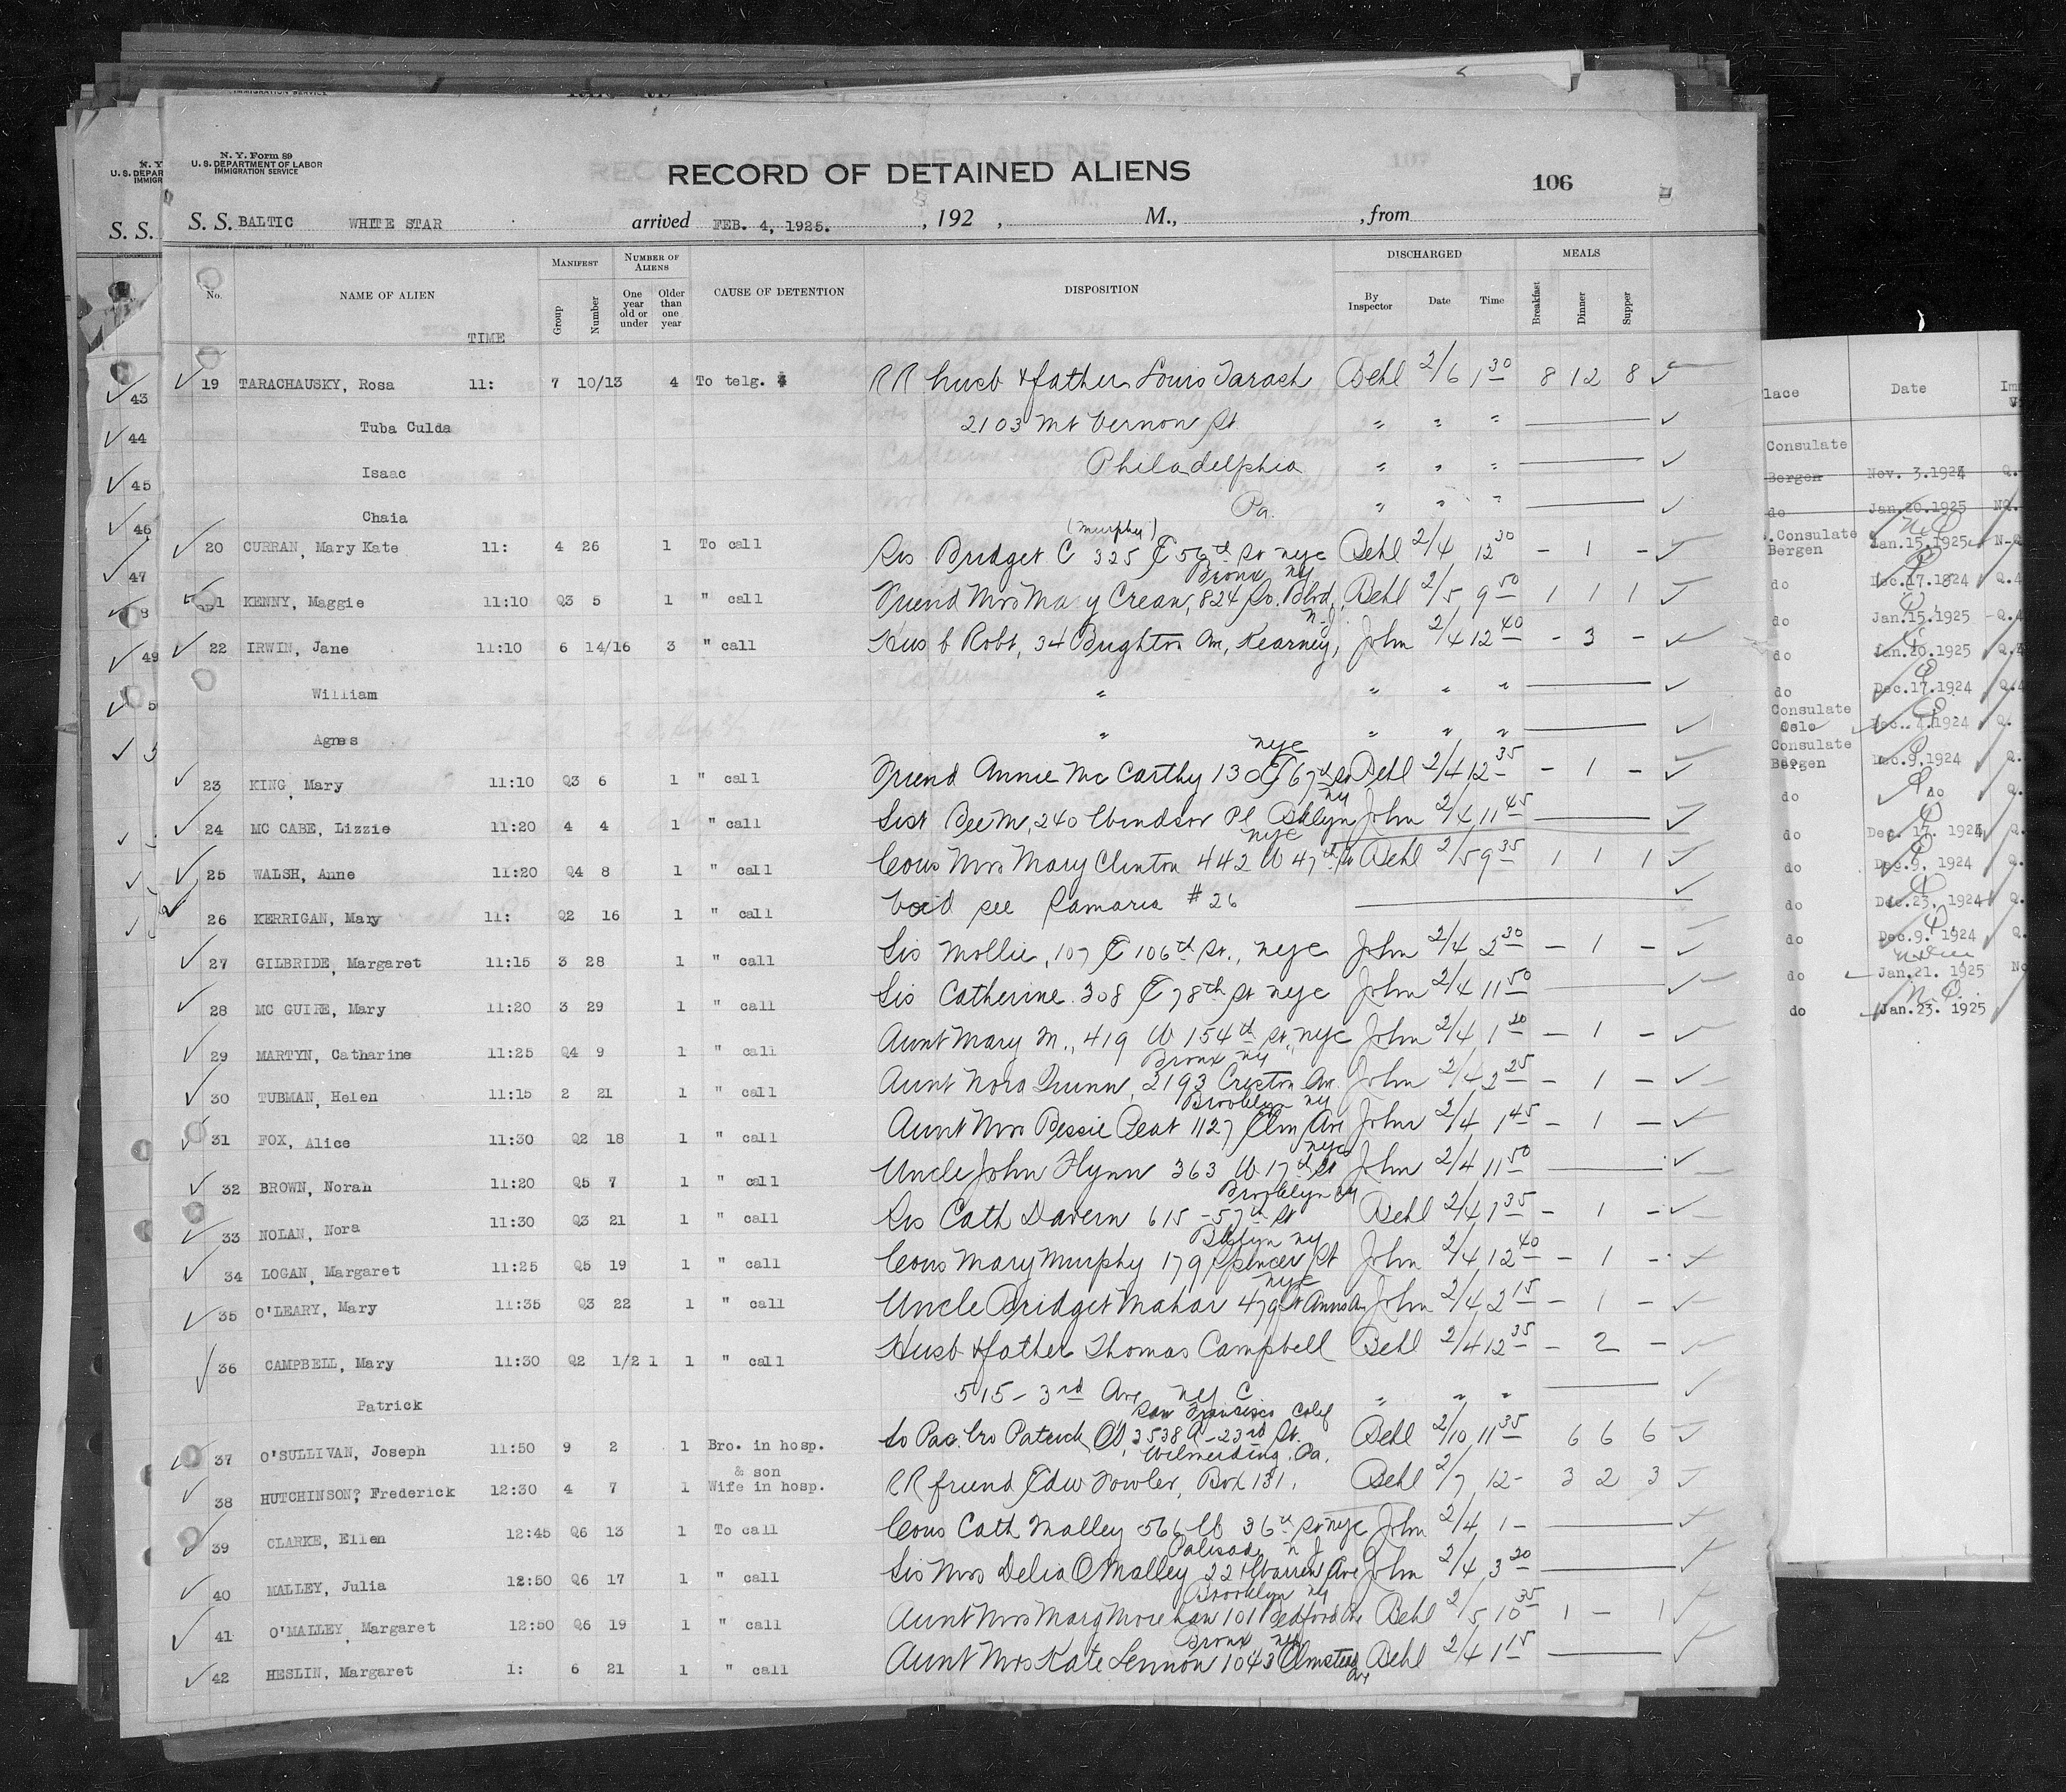 N. Y. Form 89
U. S. DEPARTMENT OF LABOR
IMMIGRATION SERVICE
RECORD OF DETAINED ALIENS
106
S. S. BALTIC WHITE STAR arrived FEB. 4, 1925. , 192 , M., , from
No. NAME OF ALIEN TIME MANIFEST Group Number NUMBER OF ALIENS One year old or under Older than one year CAUSE OF DETENTION DISPOSITION DISCHARGED By Inspector Date Time MEALS Breakfast Dinner Supper
19 TARACHAUSKY, Rosa 11: 7 10/13 4 To telg. RR husb & father Louis Tarach Behl 2/6 1 30 8 12 8
Tuba Culda 2103 Mt Vernon St. " " "
Isaac Philadelphia " " "
Chaia Pa. " " "
20 CURRAN, Mary Kate 11: 4 26 1 To call Sis Bridget C (Murphy) 325 E 56th St nyc Behl 2/4 12 30 - 1 -
21 KENNY, Maggie 11:10 Q3 5 1 " call Friend Mrs Mary Crean, 824 So. Blvd, Bronx ny Behl 2/5 9 50 1 1 1
22 IRWIN, Jane 11:10 6 14/16 3 " call Husb Robt, 34 Brighton Av, Kearney, N.J. John 2/4 12 40 - 3 -
William " " " "
Agnes " " " "
23 KING, Mary 11:10 Q3 6 1 " call Friend Annie McCarthy 130 E 67th St nyc Behl 2/4 12 35 - 1 -
24 MC CABE, Lizzie 11:20 4 4 1 " call Sist Bee M, 240 Windsor Pl Bklyn ny John 2/4 11 45
25 WALSH, Anne 11:20 Q4 8 1 " call Cous Mrs Mary Clinton 442 W 47th St nyc Behl 2/5 9 35 1 1 1
26 KERRIGAN, Mary 11: Q2 16 1 " call Void see Samaria #26
27 GILBRIDE, Margaret 11:15 3 28 1 " call Sis Mollie, 107 E 106th St., nyc John 2/4 2 30 - 1 -
28 MC GUIRE, Mary 11:20 3 29 1 " call Sis Catherine 308 E 78th St nyc John 2/4 11 50
29 MARTYN, Catharine 11:25 Q4 9 1 " call Aunt Mary M., 419 W 154th St., nyc John 2/4 1 20 - 1 -
30 TUBMAN, Helen 11:15 2 21 1 " call Aunt Nora Quinn, 2193 Creston Av. Bronx ny John 2/4 2 25 - 1 -
31 FOX, Alice 11:30 Q2 18 1 " call Aunt Mrs Bessie 1127 Elm Ave Brooklyn ny John 2/4 1 45 - 1 -
32 BROWN, Norah 11:20 Q5 7 1 " call Uncle John Flynn 363 W 17th St nyc John 2/4 11 50
33 NOLAN, Nora 11:30 Q3 21 1 " call Sis Cath Davern 615 - 57th St Brooklyn ny Behl 2/4 1 35 - 1 -
34 LOGAN, Margaret 11:25 Q5 19 1 " call Cous Mary Murphy 179 Spencer St Bklyn ny John 2/4 12 40 - 1 -
35 O'LEARY, Mary 11:35 Q3 22 1 " call Uncle Bridget Mahar 479 St Anns Av nyc John 2/4 2 15 - 1 -
36 CAMPBELL, Mary 11:30 Q2 1/2 1 1 " call Husb & father Thomas Campbell Behl 2/4 12 35 - 2 -
Patrick 515 - 3rd Ave ny C " " "
37 O'SULLIVAN, Joseph 11:50 9 2 1 Bro. in hosp. So Pac. bro Patrick O, 3538A - 23rd St. San Francisco Calif Behl 2/10 11 35 6 6 6
38 HUTCHINSON? Frederick 12:30 4 7 1 Wife & son in hosp. RR friend Edw Fowler, Box 131, Wilmerding, Pa. Behl 2/7 12- 3 2 3
39 CLARKE, Ellen 12:45 Q6 13 1 To call Cous Cath Malley 566 W 36th St nyc John 2/4 1-
40 MALLEY, Julia 12:50 Q6 17 1 " call Sis Mrs Delia O'Malley 22 Warren Ave Palisade n J John 2/4 3 20
41 O'MALLEY, Margaret 12:50 Q6 19 1 " call Aunt Mrs Marg 101 Bedford Ave Brooklyn ny Behl 2/5 10 35 1 - 1
42 HESLIN, Margaret 1: 6 21 1 " call Aunt Mrs Kate Lennon 1043 Olmstead Ave Bronx ny Behl 2/4 1 15
N. Y
U. S. DEPAR
IMMIGR
S. S.
43
44
45
46
47
49
lace Date
Consulate
Bergen Nov. 3.1924 Q.
do Jan.20.1925 NQ.
Consulate
Bergen Jan.15.1925 N-Q
do Dec.17.1924 Q.4
do Jan.15.1925 Q.4
do Jan.20.1925 Q.4
do Dec.17.1924 Q.4
Consulate
Oslo Dec. 4.1924 Q.
Consulate
Bergen Dec.9,1924 Q.
do do Q.
do Dec. 17. 1924 Q.
do Dec.9, 1924 Q.
do Dec.23, 1924 Q.
do Dec.9. 1924 Q
do Jan.21. 1925 No
do Jan.23. 1925